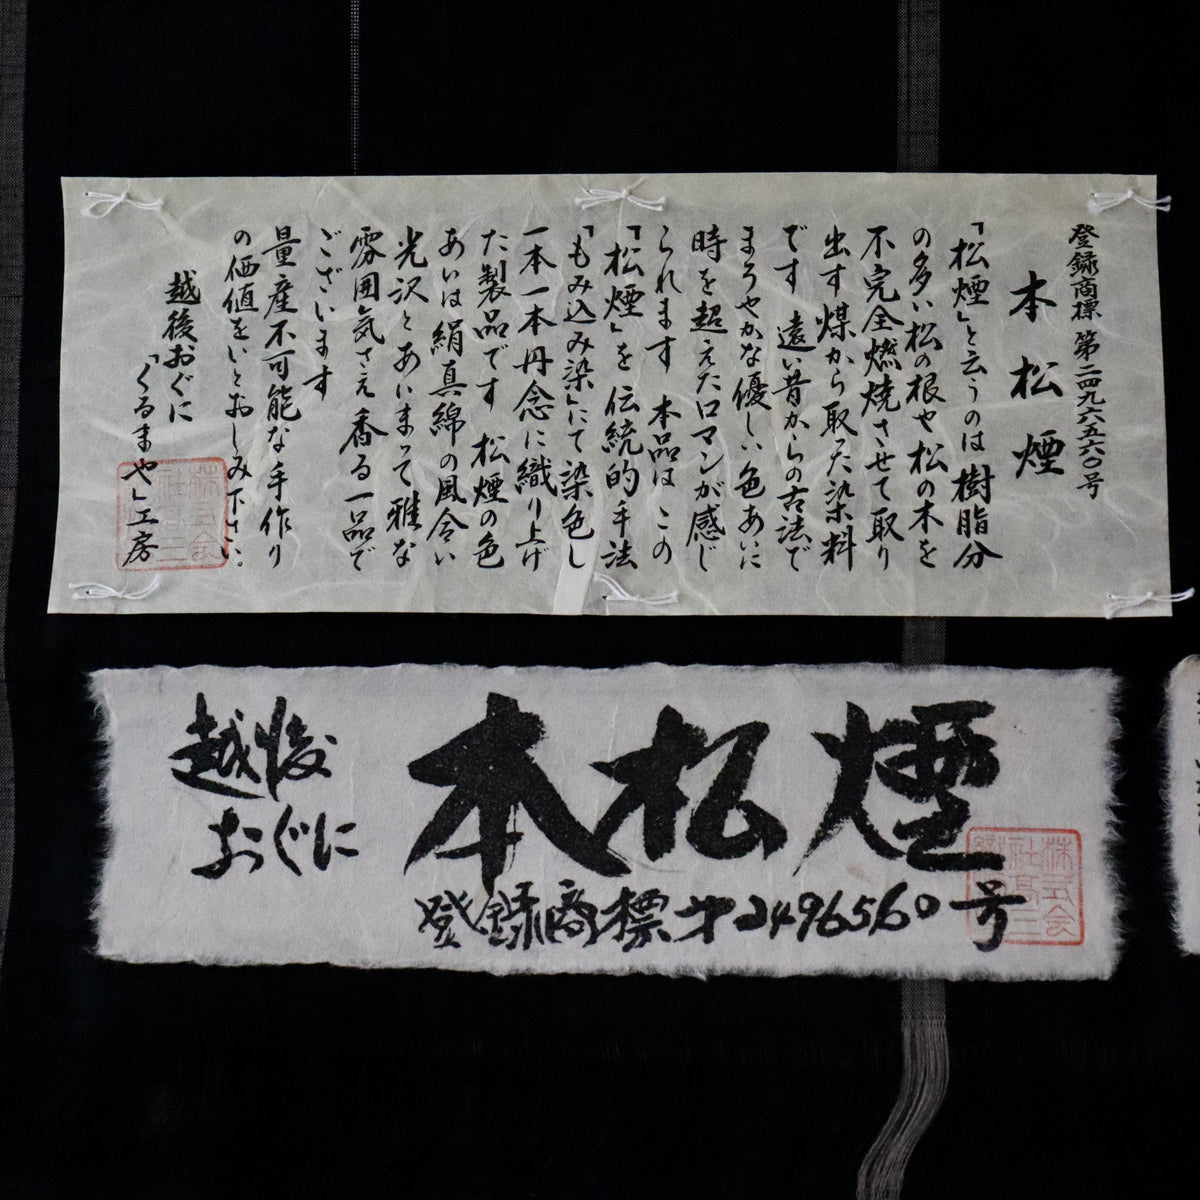 登録商標 第二四九六五六〇号
本松煙
「松煙」と云うのは樹脂分
の多い松の根や松の木を
不完全燃焼させて取り
出す煤から取った染料
です 遠い昔からの古法で
まろやかな優しい色あいに
時を超えたロマンが感じ
られます 本品は この
「松煙」を伝統的手法
「もみ込み染」にて染色し
一本一本丹念に織り上げ
た製品です 松煙の色
あいは絹真綿の風合い
光沢とあいまって雅な
雰囲気さえ香る一品で
ございます
量産不可能な手作り
の価値をいとおしみ下さい。
越後おぐに
「くるまや」工房
株式会
社高三
本松煙
越後
おぐに
登録商標第2496560号
株式会
社高三